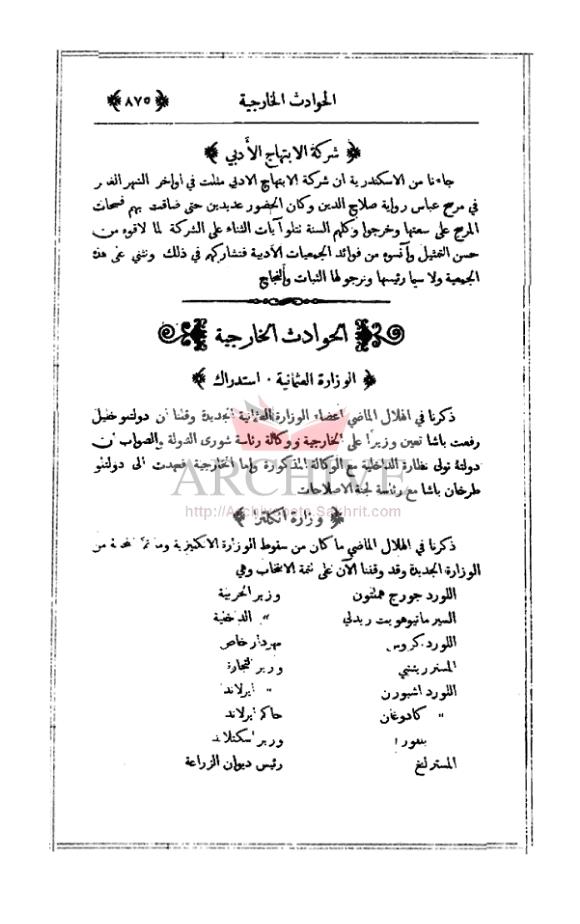 الحوادث الخارجية
﴿٨٧٥﴾
﴿ شركة الابتهاج الأدبي ﴾
جاءنا من الاسكندرية ان شركة الابتهاج الادبي مثلت في اواخر الشهر الغابر
في مرسح عباس رواية صلاح الدين وكان الحضور عديدين حتى ضاقت بهم فسحات
المرسح على سعتها وخرجوا وكلهم السنة تتلو آيات الثناء على الشركة لما لاقوه من
حسن التمثيل وآنسوه من فوائد الجمعيات الأدبية فنشاركهم في ذلك ونثني على هذه
الجمعية ولا سيما رئيسها ونرجو لها الثبات والنجاح
الحوادث الخارجية
﴿ الوزارة العثمانية . استدراك ﴾
ذكرنا في الهلال الماضي اعضاء الوزارة العثمانية الجديدة وقلنا ان دولتلو خليل
رفعت باشا تعين وزيرًا على الخارجية ووكالة رئاسة شورى الدولة والصواب ان
دولتهُ تولى نظارة الداخلية مع الوكالة المذكورة واما الخارجية فعهدت الى دولتلو
طرخان باشا مع رئاسة لجنة الاصلاحات
ARCHIVE
http://Archivebeta.Sakhrit.com
﴿ وزارة انكلترا ﴾
ذكرنا في الهلال الماضي ما كان من سقوط الوزارة الانكليزية وما تم من
الوزارة الجديدة وقد وقفنا الآن على تتمة الانتخاب وهي
اللورد جورج هملتون وزير الحربية
السير ماثيو هويت ريدلي " الداخلية
اللورد كروس مهردار خاص
المستر ريتشي وزير التجارة
اللورد اشبورن " ايرلاندا
" كادوغان حاكم ايرلاندا
بلفور وزير اسكتلاندا
المستر لنغ رئيس ديوان الزراعة